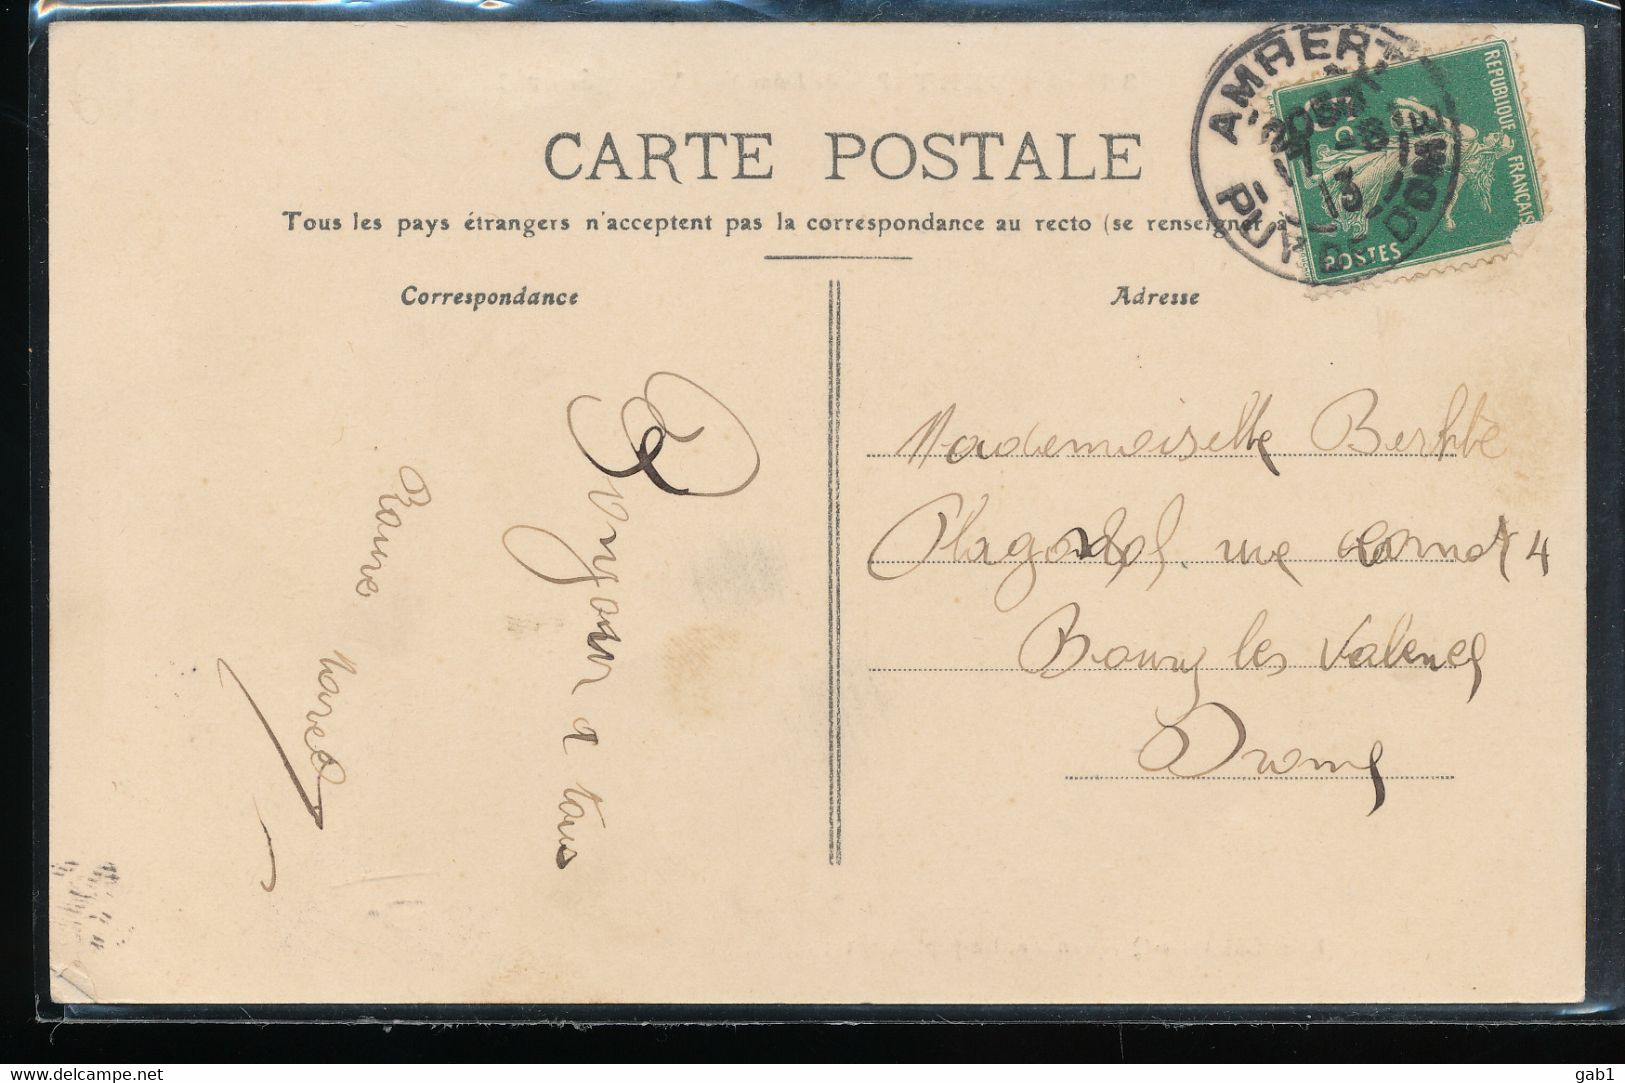 CARTE POSTALE
Tous les pays étrangers n'acceptent pas la correspondance au recto (se renseigner à
Correspondance
Adresse
AMBERT
PUY-DE-DOME
13
REPUBLIQUE FRANÇAISE
POSTES
Mademoiselle Berthe
rue Carnot 4
Bourg les Valence
Drome
Bonjour a tous
Marcel
www.delcampe.net
gab1